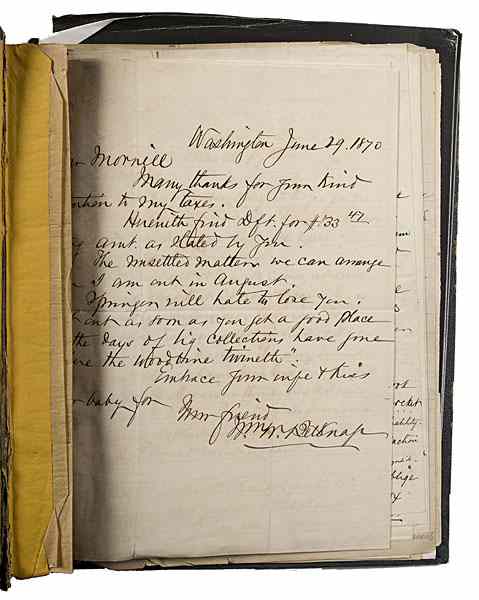 Washington June 29. 1870
Morrill
Many thanks for your kind
to my taxes.
Herewith find Dft. for $33 47
amt. as stated by you.
The unsettled matters we can arrange
I am out in August.
Springer will hate to lose you.
as soon as you get a good place
the days of big collections have gone
the woodbine twineth".
Embrace your wife & kiss
baby for
Your friend
Wm. W. Belknap